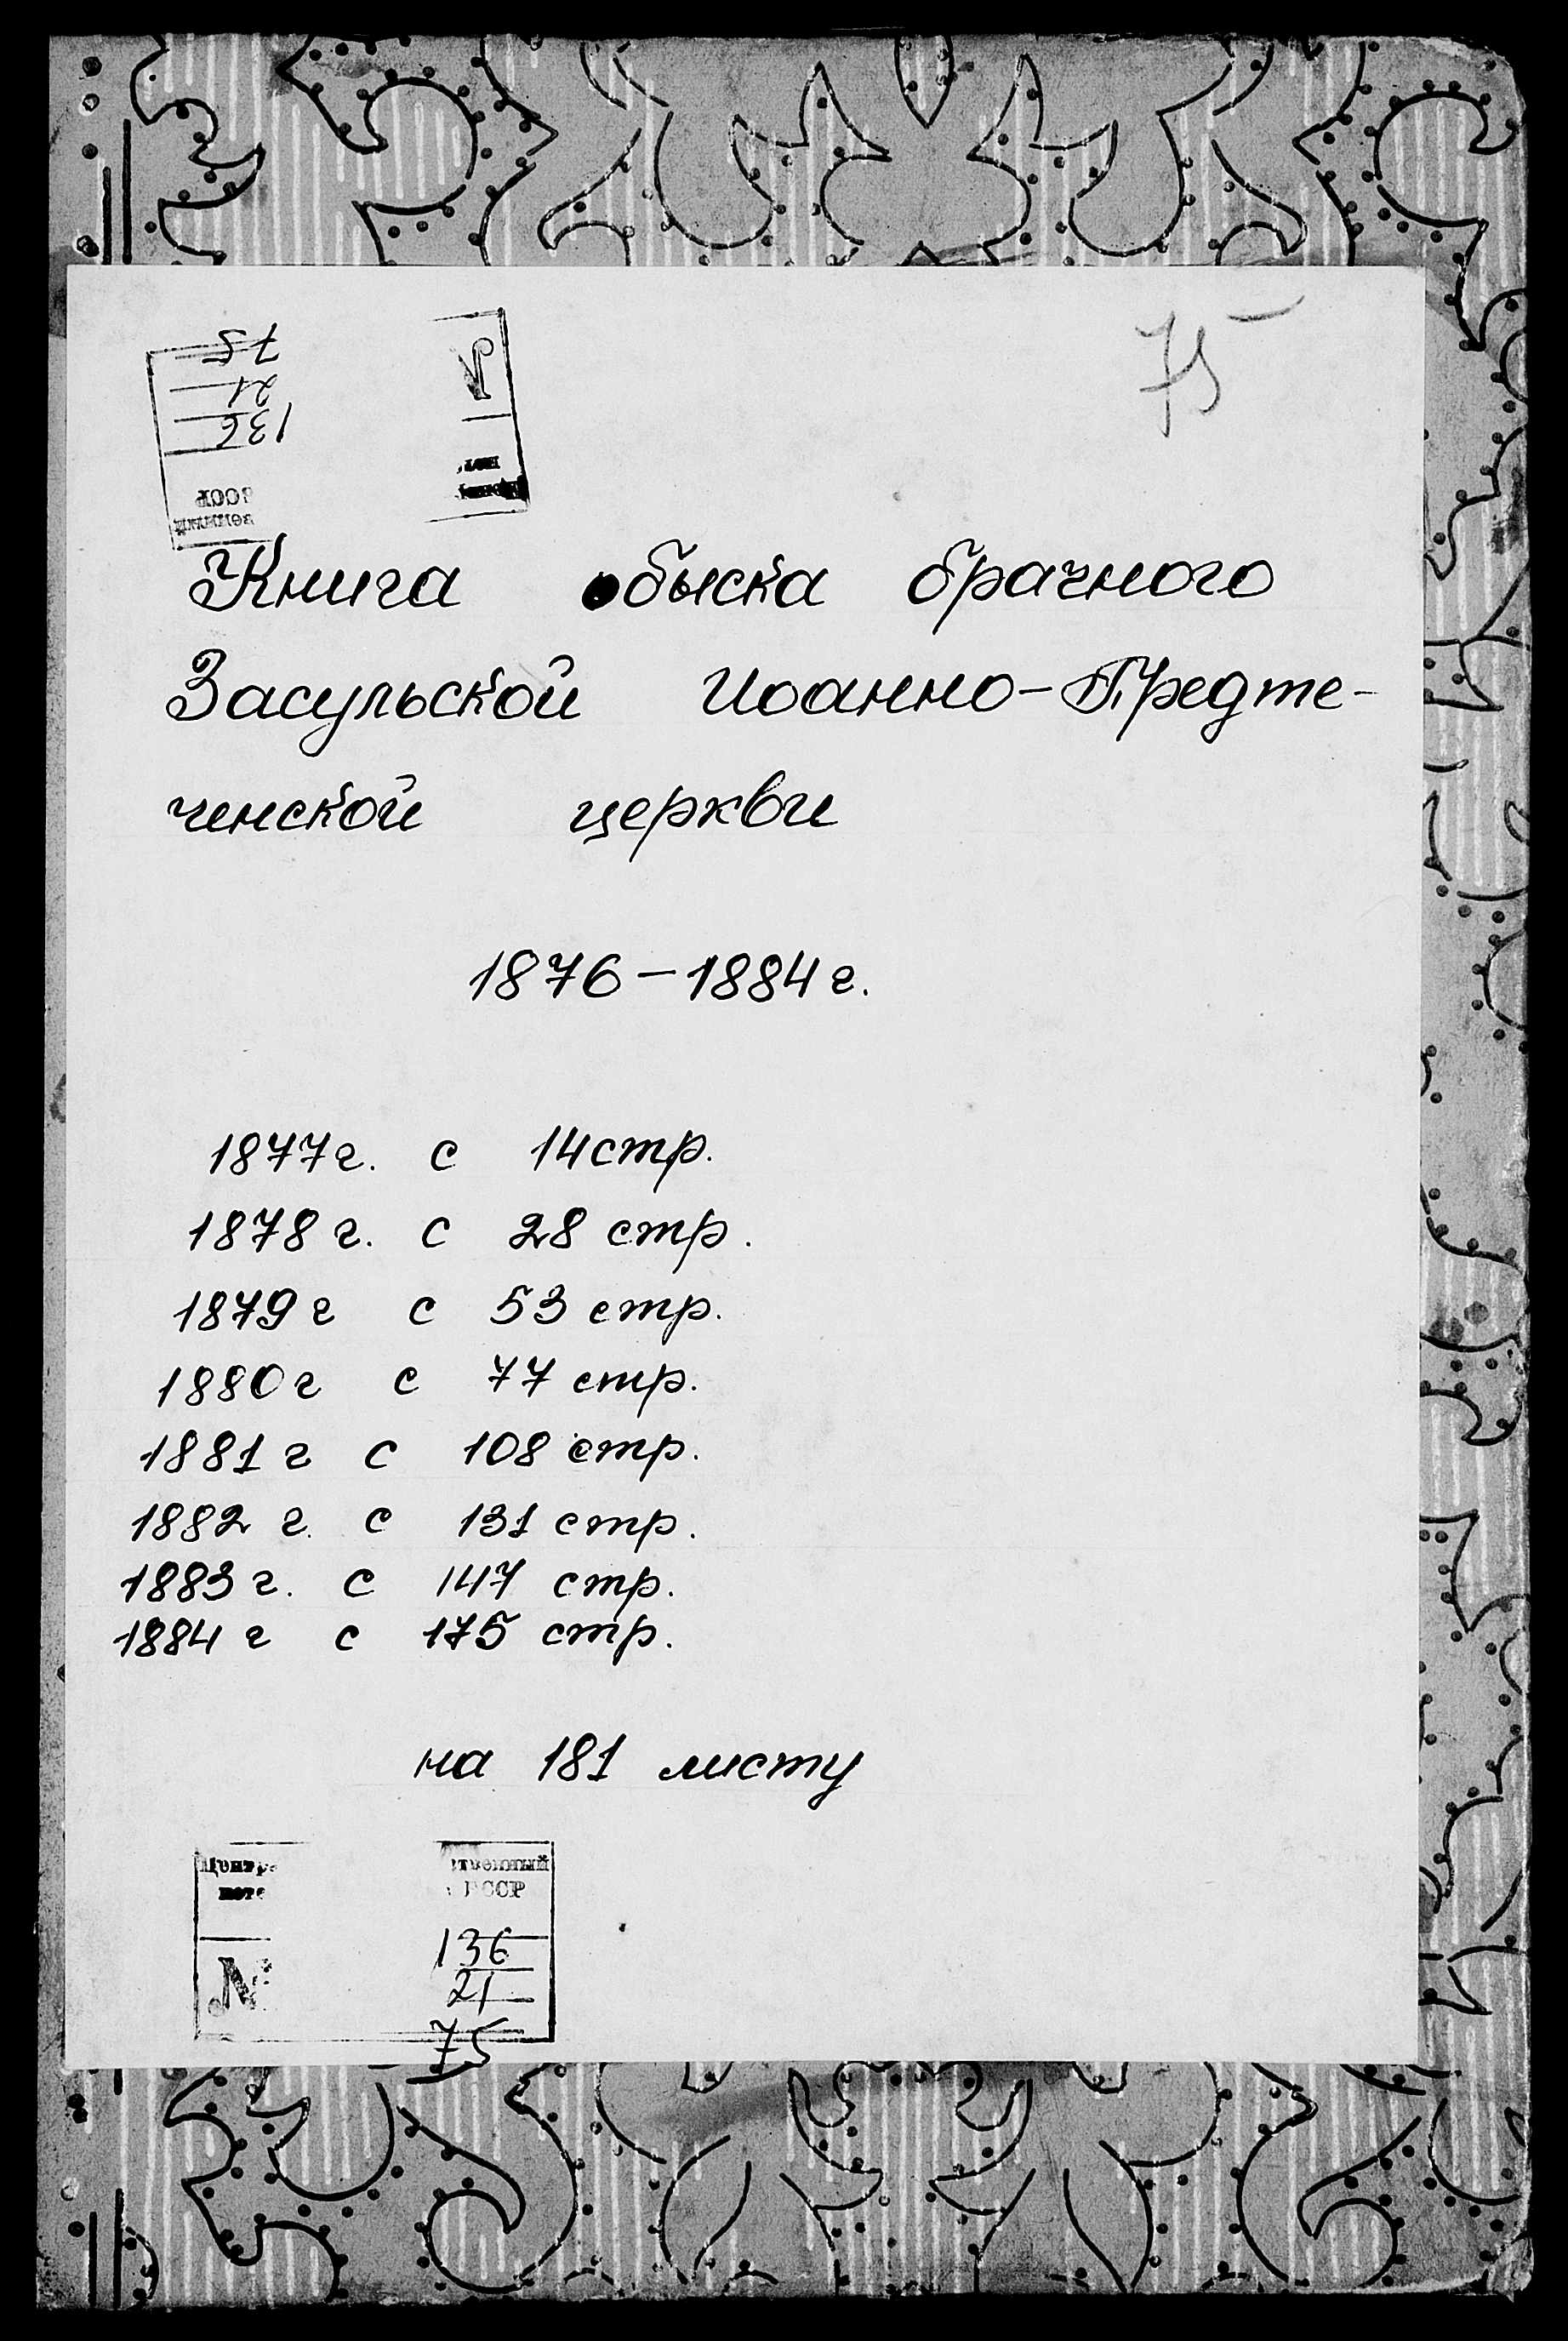 75
75
21
136
Книга обыска брачного
Засульской Иоанно-Предте-
ченской церкви
1876-1884 г.
1877 г. с 14 стр.
1878 г. с 28 стр.
1879 г с 53 стр.
1880 г с 77 стр.
1881 г с 108 стр.
1882 г. с 131 стр.
1883 г. с 147 стр.
1884 г с 175 стр.
на 181 листу
136
21
75